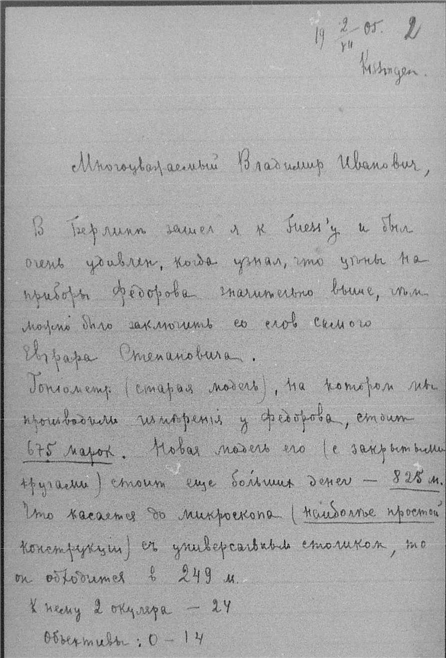 19 2/VII 05. 2
Kissingen.
Многоуважаемый Владимир Иванович,
В Берлинѣ зашел я к Fuess'у и был
очень удивлен, когда узнал, что цѣны на
приборы Федорова значительно выше, чѣм
можно было заключить со слов самого
Евграфа Степановича.
Гонiометр (старая модель), на котором мы
производили измѣренiя у Федорова, стоит
675 марок. Новая модель его (с закрытыми
кругами) стоит еще больших денег – 825 м.
Что касается до микроскопа (наиболѣе простой
конструкцiи) съ универсальным столиком, то
он обходится в 249 м.
К нему 2 окулера – 24
Объективы: 0 – 14